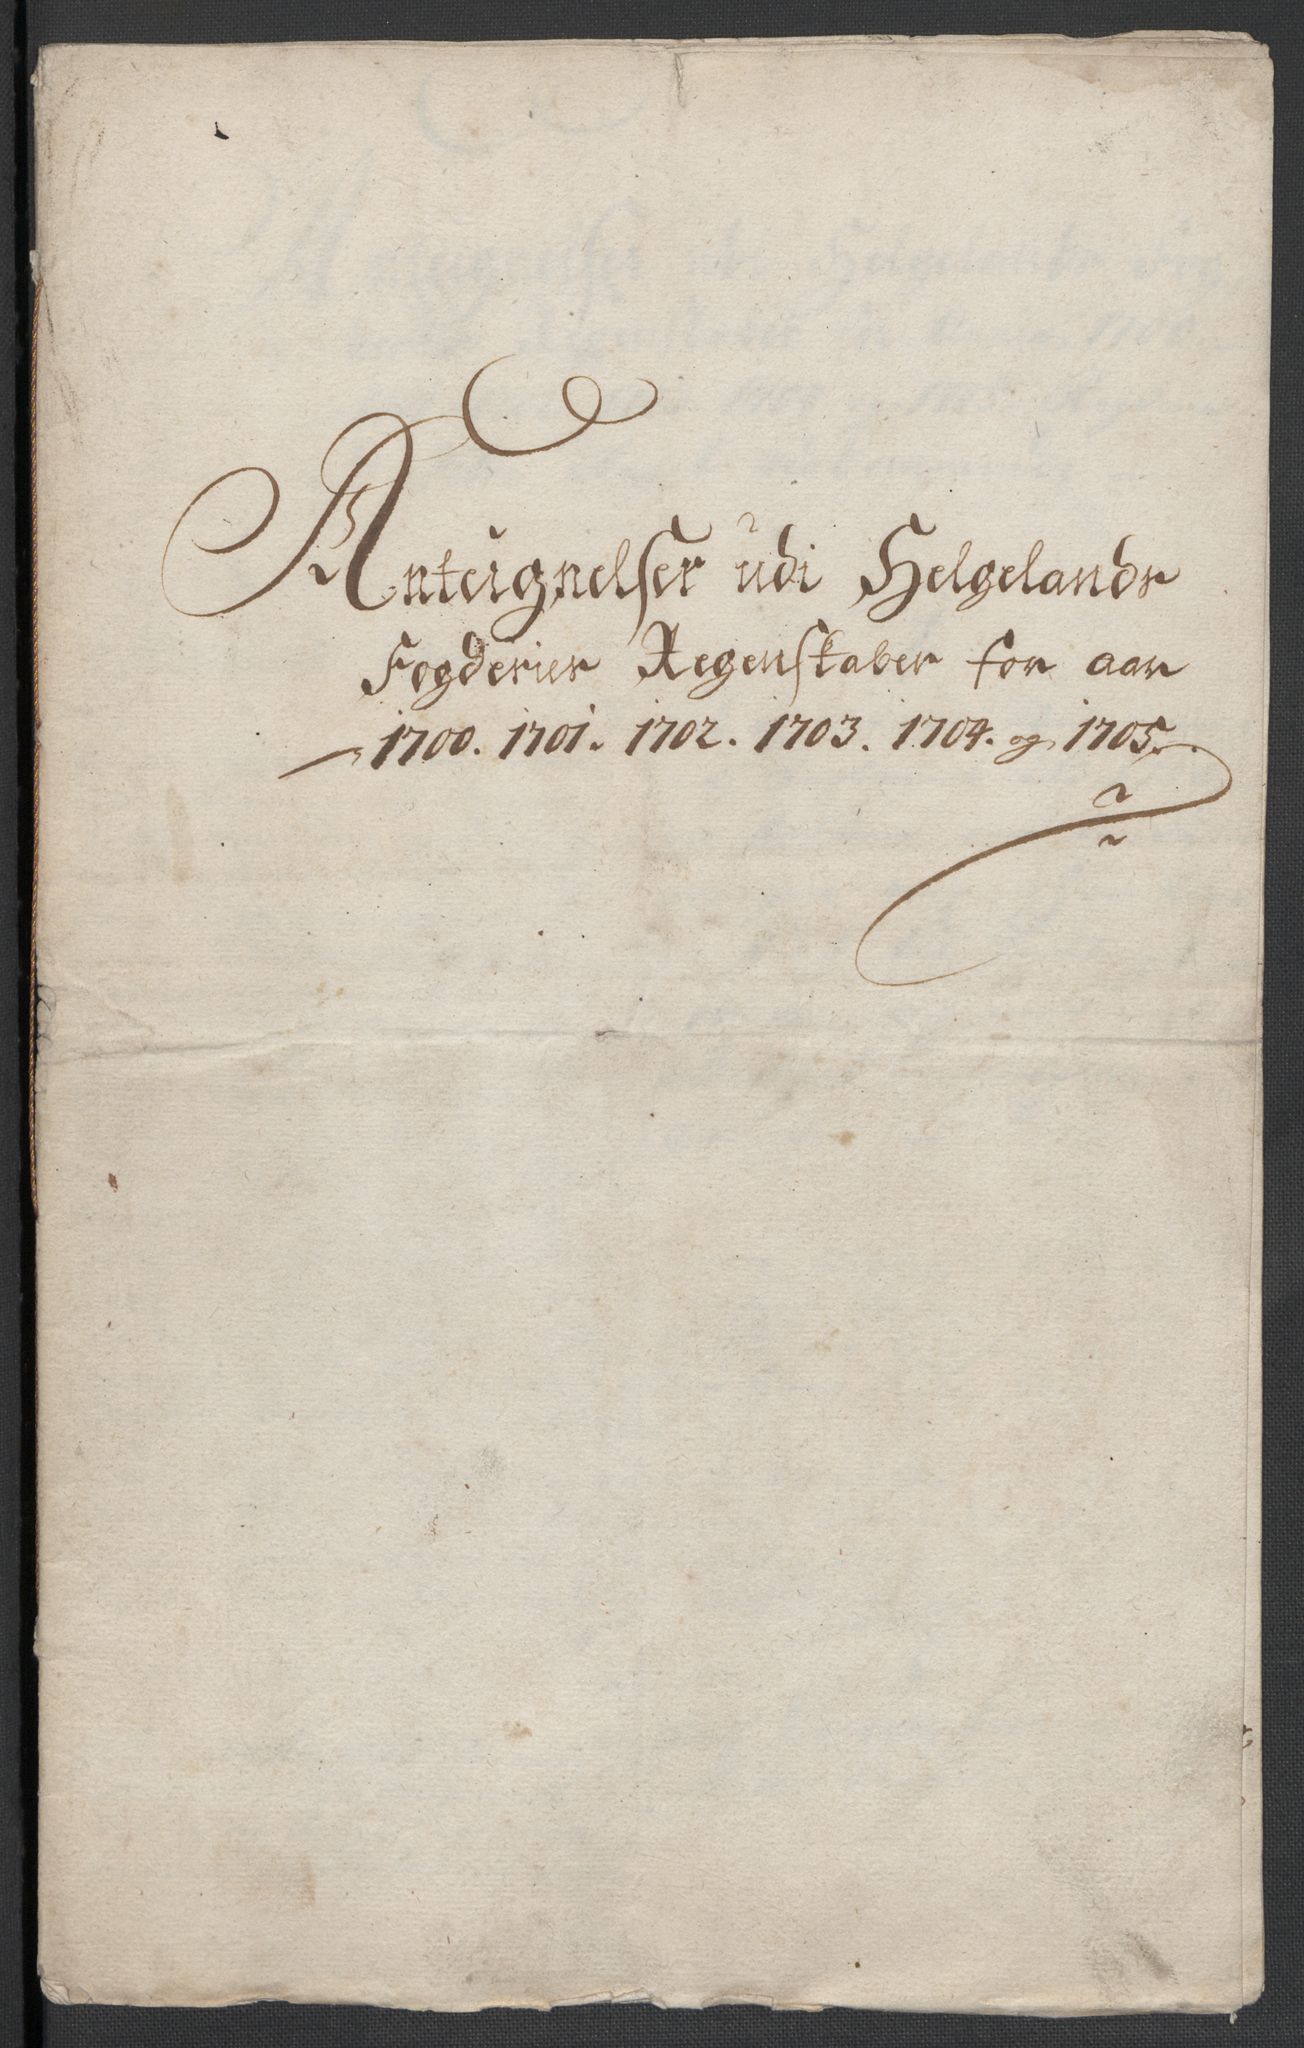 Anteignelser udi Helgelands
Fogderies Regenskaber for aar
1700. 1701. 1702. 1703. 1704. og 1705.